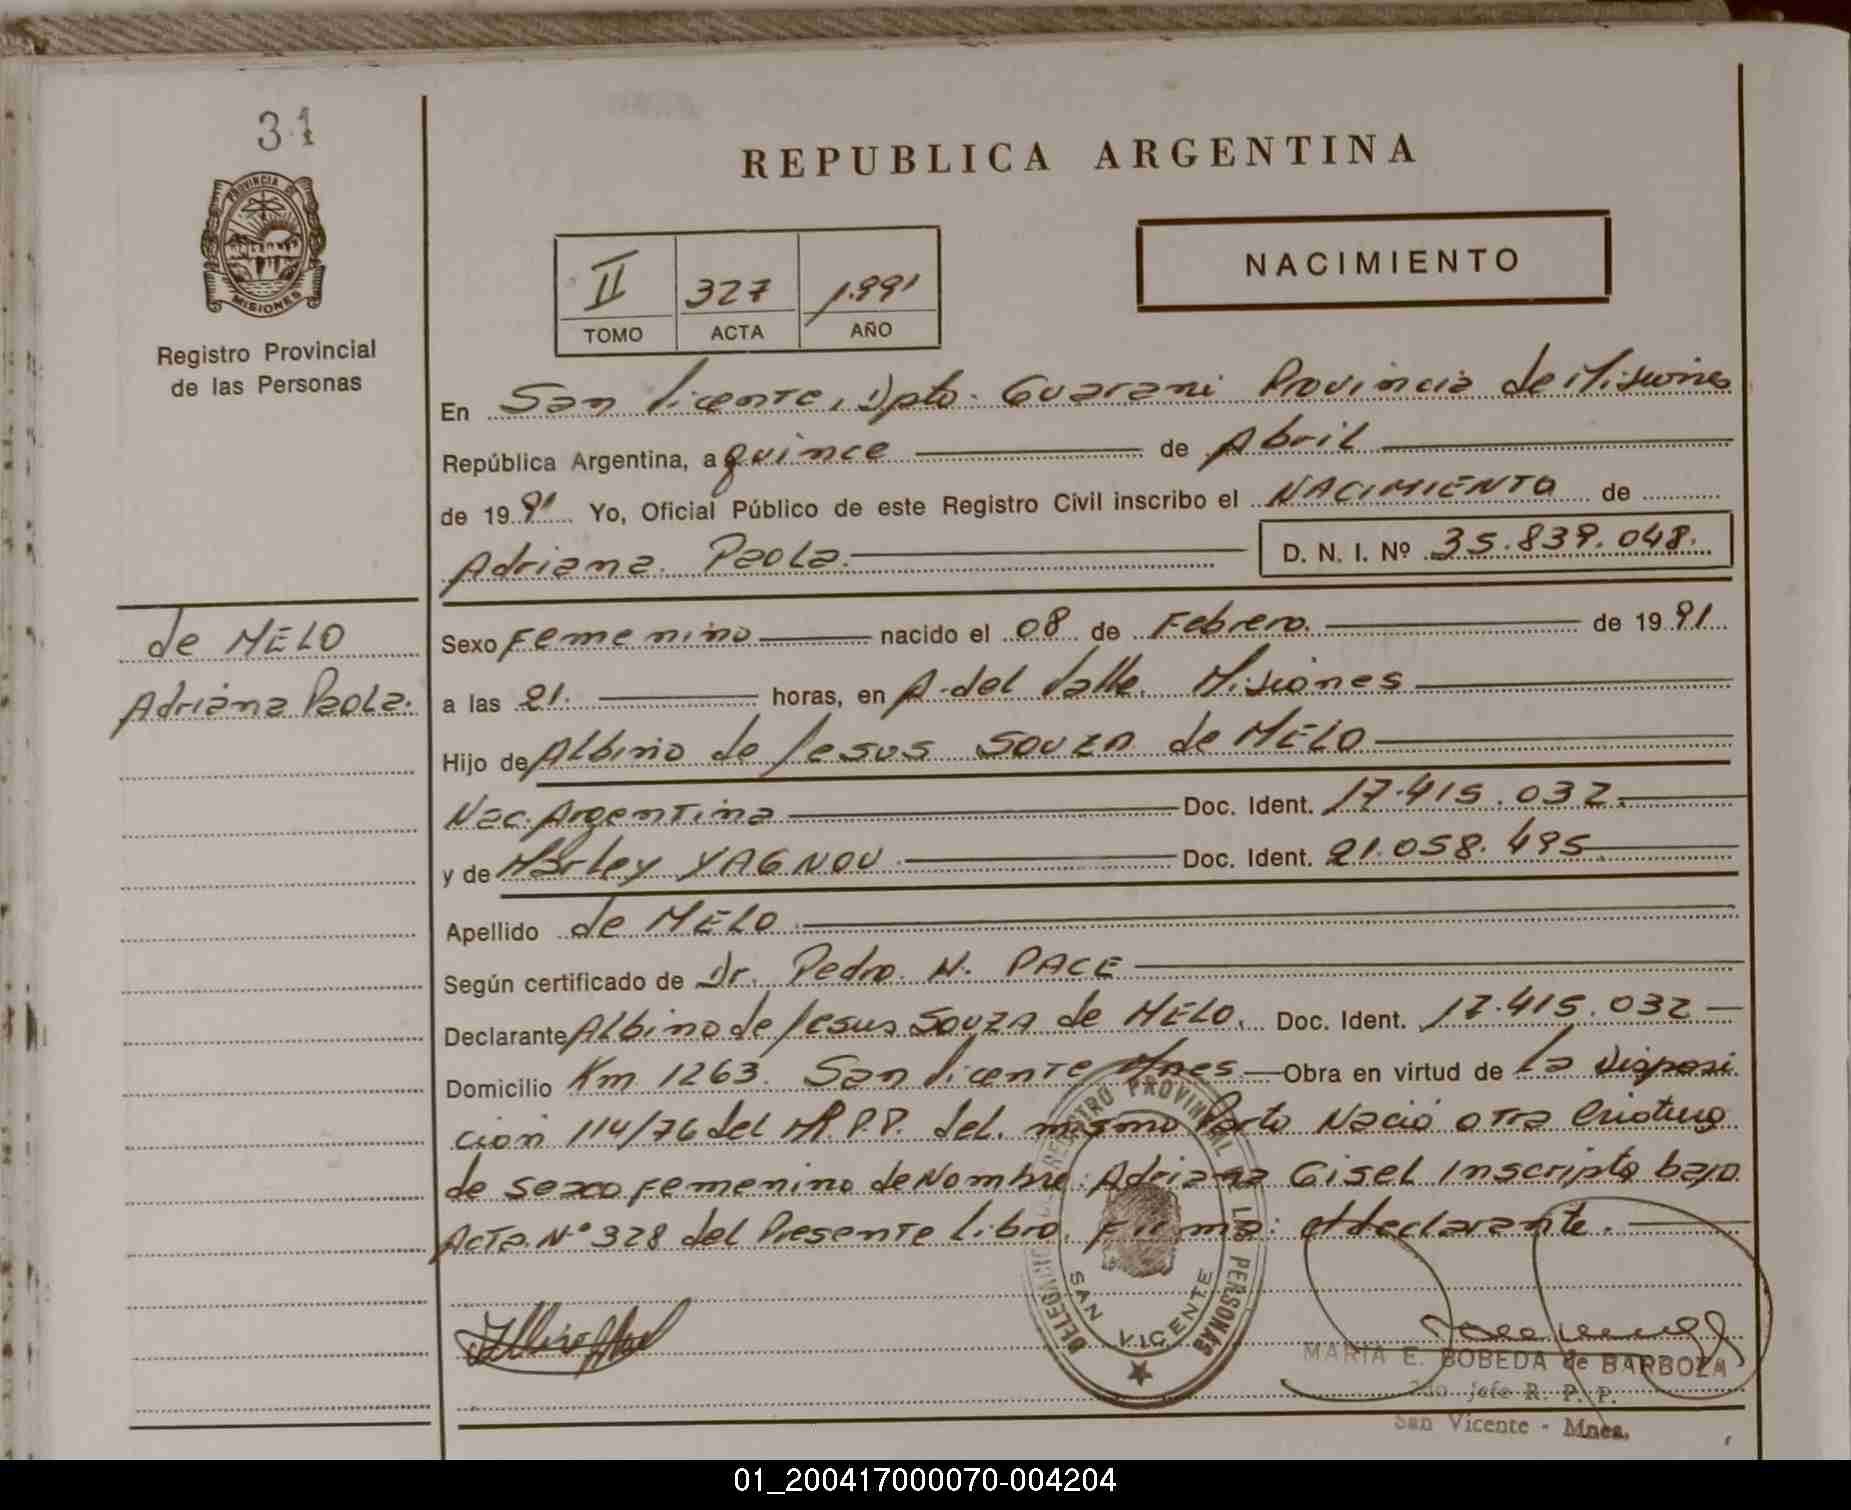 31
PROVINCIA DE
MISIONES
Registro Provincial
de las Personas
REPUBLICA ARGENTINA
II 327 1.991
TOMO ACTA AÑO
NACIMIENTO
En San Vicente, Dpto. Guarani Provincia de Misiones
República Argentina, a quince de Abril
de 1991 Yo, Oficial Público de este Registro Civil inscribo el NACIMIENTO de
Adriana Paola. D. N. I. Nº 35.839.048.
de MELO
Adriana Paola.
Sexo Femenino nacido el 08 de Febrero. de 1991
a las 21. horas, en A. del Valle. Misiones
Hijo de Albino de Jesus SOUZA de MELO
Nac. Argentina Doc. Ident. 17.415.032.
y de Marley YAGNOU. Doc. Ident. 21.058.495
Apellido de MELO
Según certificado de Dr. Pedro N. PACE
Declarante Albino de Jesus SOUZA de MELO. Doc. Ident. 17.415.032
Domicilio Km 1263. San Vicente Mnes Obra en virtud de la Disposi
cion 114/76 del R.P.P. del mismo Parto Nació otra Criatura
de sexo Femenino de Nombre: Adriana Gisel Inscripta bajo
Acta Nº 328 del Presente Libro. Firma: el declarante.
REGISTRO PROVINCIAL DE LAS PERSONAS
SAN VICENTE
MARIA E. BOBEDA de BARBOZA
2do. Jefe R. P. P.
San Vicente - Mnes.
01_200417000070-004204